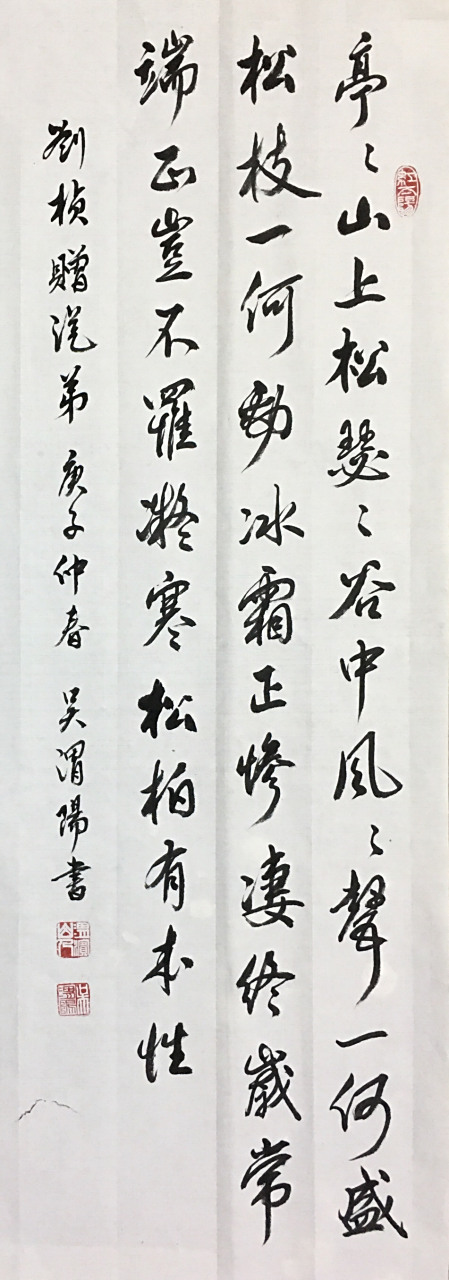 亭〻山上松瑟〻谷中風〻聲一何盛
松枝一何勁冰霜正慘凄終歲常
端正豈不羅凝寒松柏有本性
劉楨贈從弟 庚子仲春 吴渭陽書